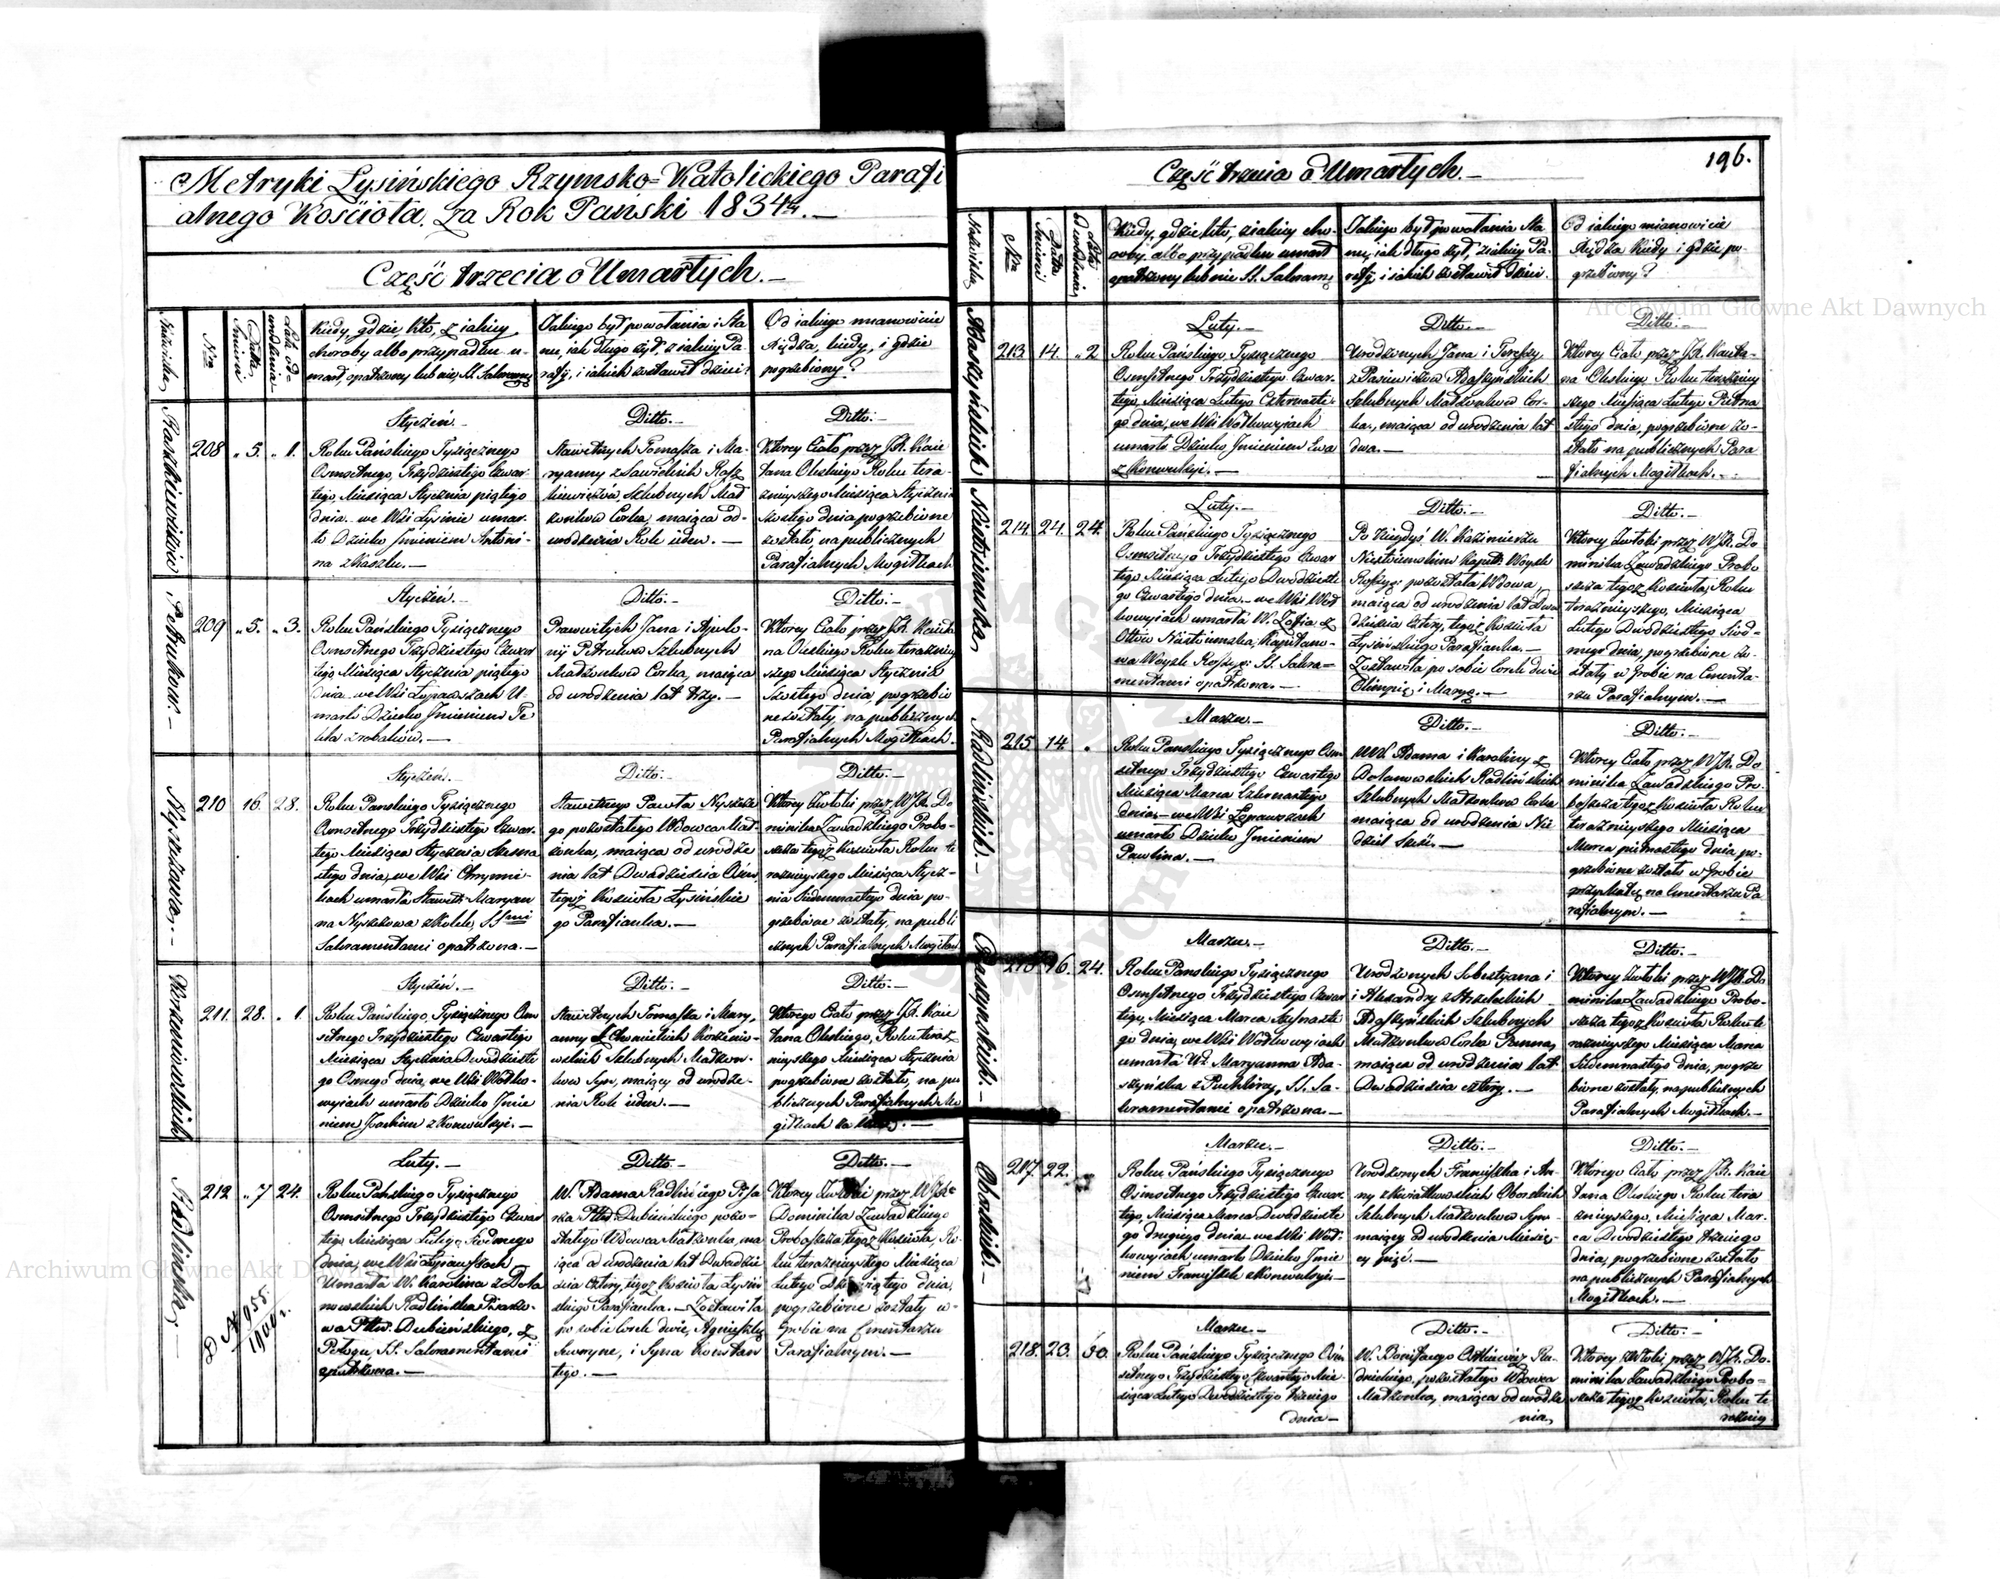 Metryki Lysińskiego Rzymsko-Katolickiego Parafi
alnego Kościoła za Rok Pański 1834ty.—
Część trzecia o Umarłych.—
Nazwiska
Nro
Datta Śmierci
Lata od urodzenia
Kiedy, gdzie kto, z jakiey
choroby albo przypadku u-
marł, opatrzony lub nie, SS. Sakramy
Jakiego był powołania i Sta
nu, jak długo żył, z jakiey Pa-
rafij, i jakich zostawił dzieci?
Od jakiego mianowicie
Xiędza, kiedy, i gdzie
pogrzebiony?
Raszkiewiczów
208
5.
1.
Styczeń.—
Roku Pańskiego Tysiącznego
Osmsetnego Trzydziestego Czwar-
tego, Miesiąca Stycznia piątego
dnia we Wsi Łysinie umar-
ło Dziecko Jmieniem Antoni-
na z Kaszlu.—
Ditto.—
Sławetnych Tomasza i Ma-
ryanny z Sawickich Rasz
kiewiczów Szlubnych Mał
żonków Corka, maiąca od-
urodzenia Rok ieden.—
Ditto:—
Ktorey Ciało przez JX. Kaie
tana Olskiego Roku tera
znieyszego Miesiąca Stycznia
szostego dnia pogrzebione
zostało na publicznych
Parafialnych Mogiłkach
Petruków.—
209
5.
3.
Styczeń.—
Roku Pańskiego Tysiącznego
Osmsetnego Trzydziestego Czwar
tego, Miesiąca Stycznia piątego
Dnia we Wsi Łopawszach U-
marło Dziecko Jmieniem Te
kla z robaków.—
Ditto:—
Prawowitych Jana i Apolo-
nij Petruków Szlubnych
Małżonków Corka, maiąca
od urodzenia lat trzy.—
Ditto:—
Ktorey Ciało przez JX. Kaieta
na Olskiego Roku teraznie
szego Miesiąca Stycznia
Szostego dnia, pogrzebio
ne zostały, na publicznych
Parafialnych Mogiłkach.
Nyszkowa.—
210
16.
28.
Styczeń.—
Roku Pańskiego Tysiącznego
Osmsetnego Trzydziestego Czwar-
tego Miesiąca Stycznia Szesna
stego dnia, we Wsi
umarła Sławetn. Maryan
na Nyszkowa z Kolek, SSmi
Sakramentami opatrzona.—
Ditto:—
Sławetnego Pawła Nyszko
go pozostałego Wdowca Mał
żonka, maiąca od urodze
nia lat Dwadzieścia Osm,
tegoż Kościoła Łysińskie
go Parafianka.—
Ditto.—
Ktorey Zwłoki przez WJX. Do
minika Zawadzkiego Probo-
szcza tegoż Kościoła Roku te
raznieyszego Miesiąca Stycz-
nia Siedemnastego dnia po-
grzebione zostały, na publi
cznych Parafialnych Mogiłkach
Korzeniowskich
211.
28.
1.
Styczeń.—
Roku Pańskiego, Tysiącznego Osm
setnego Trzydziestego Czwartego
Miesiąca Stycznia Dwadzieste
go Osmego dnia, we Wsi Wołko-
wyiach umarło Dziecko Jmie
niem Joachim z Konwulsyi.—
Ditto:—
Sławetnych Tomasza i Mary
anny z Chmielskich Korzenio-
wskich Szlubnych Małżon-
ków Syn, maiący od urodze-
nia Rok ieden.—
Ditto:—
Ktorego Ciało przez JX. Kaie
tana Olskiego, Roku teraz
nieyszego Miesiąca Stycznia
pogrzebione zostało, na pu
blicznych Parafialnych Mo
giłkach
Radlińska.—
212
7
24.
D No 955.
1900 r.
Luty.—
Roku Pańskiego Tysiącznego
Osmsetnego Trzydziestego Czwar
tego Miesiąca Lutego, Siodmego
dnia, we Wsi Łopawszach
Umarła W. Karolina z Doła
nowskich Radlińska Pisarzo-
wa Pttu Dubieńskiego, z
Połogu, SS. Sakramentami
opatrzona.—
Ditto.—
W. Adama Radlińskiego Pisa
rza Pttu Dubieńskiego pozo-
stałego Wdowca Małżonka, ma
iąca od urodzenia lat Dwadzie
ścia Cztery, tegoż Kościoła Łysiń
skiego Parafianka.— Zostawiła
po sobie Corek dwie, Agnieszkę
Sewerynę, i Syna Konstan
tego.—
Ditto.—
Ktorey Zwłoki przez WJXa
Dominika Zawadzkiego
Proboszcza tegoż Kościoła, Ro
ku teraznieyszego Miesiąca
Lutego dnia,
pogrzebione zostały w-
Grobie na Cmentarzu
Parafialnym.—
Część trzecia o Umarłych.—
196.
Nazwiska
Nro
Datta Śmierci
Lata od urodzenia
Kiedy, gdzie kto, z jakiey cho-
roby albo przypadku umarł
opatrzony lub nie SS. Sakramy
Jakiego był powołania Sta
nu, jak długo żył, z jakiey Pa-
rafij, i jakich zostawił dzieci.
Od jakiego mianowicie
Xiędza kiedy i gdzie po
grzebiony?
Adaszyńskich
213
14.
2
Luty.—
Roku Pańskiego Tysiącznego
Osmsetnego Trzydziestego Czwar-
tego, Miesiąca Lutego Czternaste-
go dnia, we Wsi Wołkowyiach
umarło Dziecko Jmieniem Ewa
z Konwulsyi.—
Ditto.—
Urodzonych Jana i Tereszy
z Pasiewiczów Adaszyńskich
Szlubnych Małżonków Cor-
ka, maiąca od urodzenia lat
dwa.—
Ditto:—
Ktorey Ciało przez JX. Kaieta-
na Olskiego Roku teraźniey
szego Miesiąca Lutego Piętna
stego dnia, pogrzebione zo-
stało na publicznych Para
fialnych Mogiłkach.—
Niestoiemska
214.
24.
24.
Luty.—
Roku Pańskiego Tysiącznego
Osmsetnego Trzydziestego Czwar
tego Miesiąca Lutego Dwudzieste
go Czwartego dnia we Wsi Woł
kowyiach umarła W. Zofia z
Ottów Kapitano-
wa Woysk Rossyy: SS. Sakra-
mentami opatrzona.—
Ditto:—
Po Niegdyś W. Kazimierzu
Kapit: Woysk
Rossyy: pozostała Wdowa,
maiąca od urodzenia lat Dwa
dzieścia Cztery, tegoż Kościoła
Łysińskiego Parafianka.—
Zostawiła po sobie Corek dwie
Olimpię i Maryę.—
Ditto.—
Ktorey Zwłoki przez WJX. Do
minika Zawadzkiego Probo
szcza tegoż Kościoła, Roku
teraznieyszego, Miesiąca
Lutego Dwudziestego Siod-
mego dnia, pogrzebione zo-
stały w Grobie na Cmenta-
rzu Parafialnym.—
Radlińskich.—
215
14.
Marzec.—
Roku Pańskiego Tysiącznego Osm-
setnego Trzydziestego Czwartego
Miesiąca Marca Czternastego
dnia,— we Wsi Łopawszach
umarło Dziecko Jmieniem
Pawlina.—
Ditto.—
WW. Adama i Karoliny z
Dołanowskich Radlińskich
Szlubnych Małżonków Corka
maiąca od urodzenia Nie
dziel Sześć.—
Ditto.—
Ktorey Ciało przez WJX. Do-
minika Zawadzkiego Pro-
boszcza tegoż Kościoła Roku
teraznieyszego Miesiąca
Marca piętnastego dnia po-
grzebione zostało w Grobie
przy Matce, na Cmentarzu Pa
rafialnym.—
Adaszynskich.—
216.
16.
24.
Marzec.—
Roku Pańskiego Tysiącznego
Osmsetnego Trzydziestego Czwar
tego, Miesiąca Marca Szesnaste
go dnia, we Wsi Wołkowyiach
umarła Ur. Maryanna Ada-
szyńska z Puchliny, SS. Sa-
kramentami opatrzona.—
Ditto.—
Urodzonych Sebestyana i
i Alexandry z Strzeleckich
Adaszyńskich Szlubnych
Małżonków Corka Panna,
maiąca od urodzenia lat
Dwadzieścia cztery.—
Ditto.—
Ktorey Zwłoki przez WJX. Do
minika Zawadzkiego Probo-
szcza tegoż Kościoła Roku te
raznieyszego Miesiąca Marca
Siedemnastego dnia, pogrze
bione zostały, na publicznych
Parafialnych Mogiłkach.—
Oborskich.—
217.
22.
Marzec.—
Roku Pańskiego Tysiącznego
Osmsetnego Trzydziestego Czwar-
tego, Miesiąca Marca Dwudzieste
go drugiego dnia we Wsi Woł-
kowyiach umarło Dziecko Jmie
niem Franciszek z Konwulsyi.—
Ditto:—
Urodzonych Franciszka i An-
ny z Kwiatkowskich Oborskich
Szlubnych Małżonków Syn-
maiący od urodzenia Miesię-
cy pięć.—
Ditto:—
Ktorego Ciało przez JX. Kaie
tana Olskiego Roku tera
znieyszego, Miesiąca Mar-
ca Dwudziestego trzeciego
dnia, pogrzebione zostało
na publicznych Parafialnych
Mogiłkach.—
218.
23.
50.
Marzec.—
Roku Pańskiego Tysiącznego Osm
setnego Trzydziestego Czwartego Mie-
siąca Lutego Dwudziestego trzeciego
dnia—
Ditto.—
W. Bonifacego Ra-
dnickiego, pozostałego Wdowca
Małżonka, maiąca od urodze
nia,
Ditto:—
Ktorey Zwłoki, przez WJX. Do-
minika Zawadzkiego Probo-
szcza tegoż Kościoła, Roku te
razniey
Archiwum Główne Akt Dawnych
Archiwum Główne Akt Dawnych